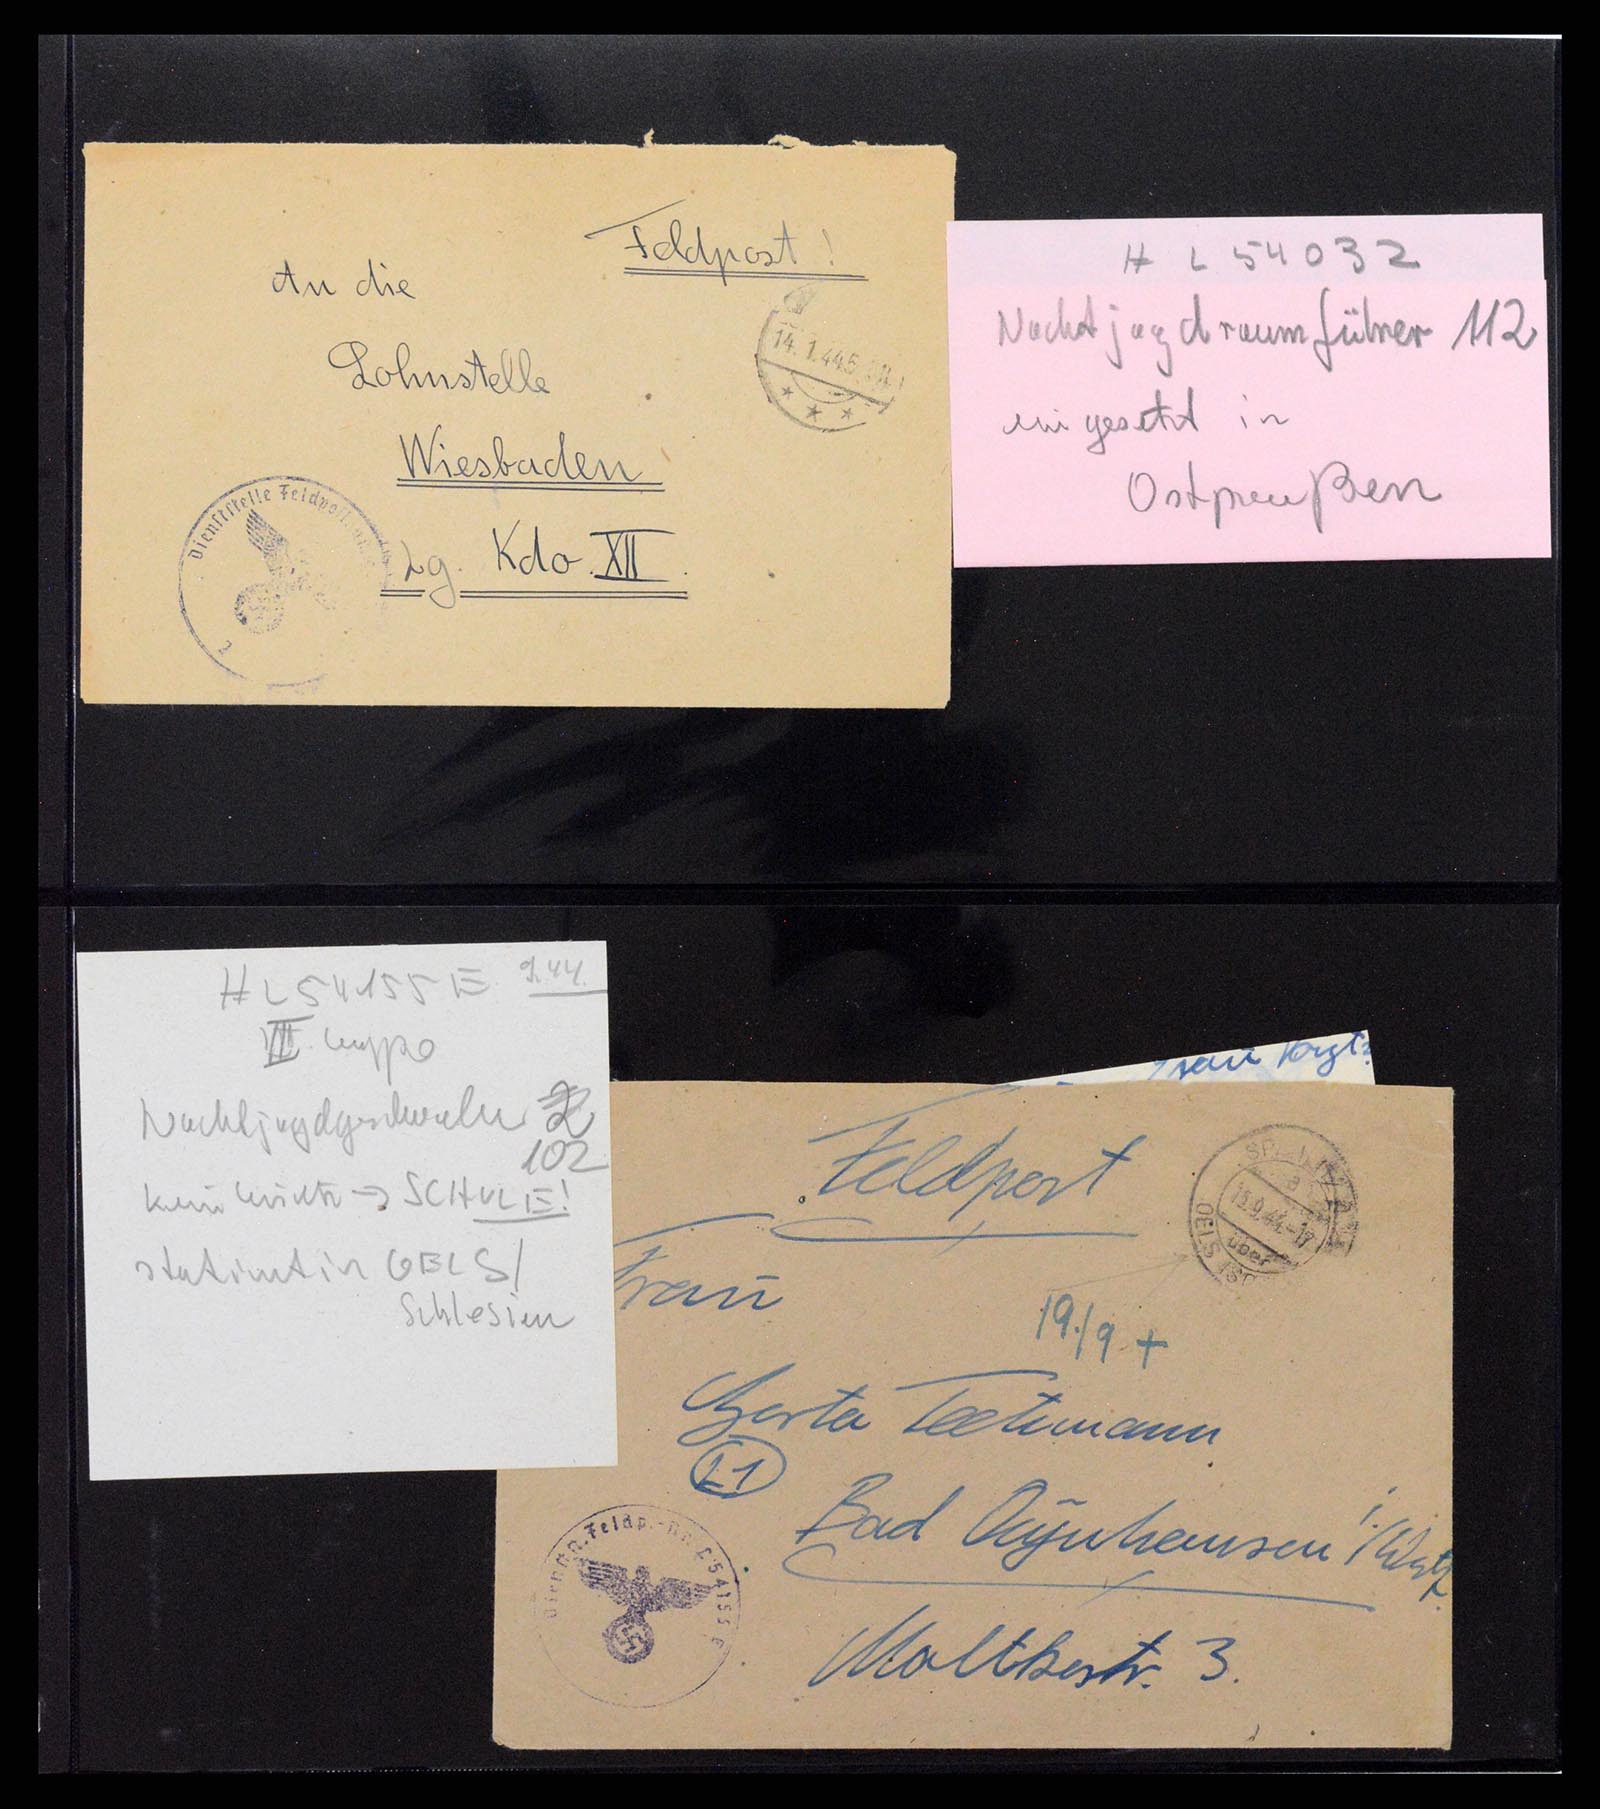 Feldpost!
An die
Lohnstelle
Wiesbaden
Lg. Kdo. XII
14.1.44
Dienststelle Feldpost
2
# L 54032
Nachtjagdraumführer 112
eingesetzt in
Ostpreußen
# L 54155 E 9.44.
III. Gruppe
Nachtjagdgeschwader 2
102
→ SCHULE!
stationiert in OELS/
Schlesien
Frau
Feldpost
OELS
a
15.9.44-17
über
Frau
19./9 +
Berta Teetzmann
21
Bad Oeynhausen i./Westf.
Moltkestr. 3.
Feldp.-Nr. L 54155